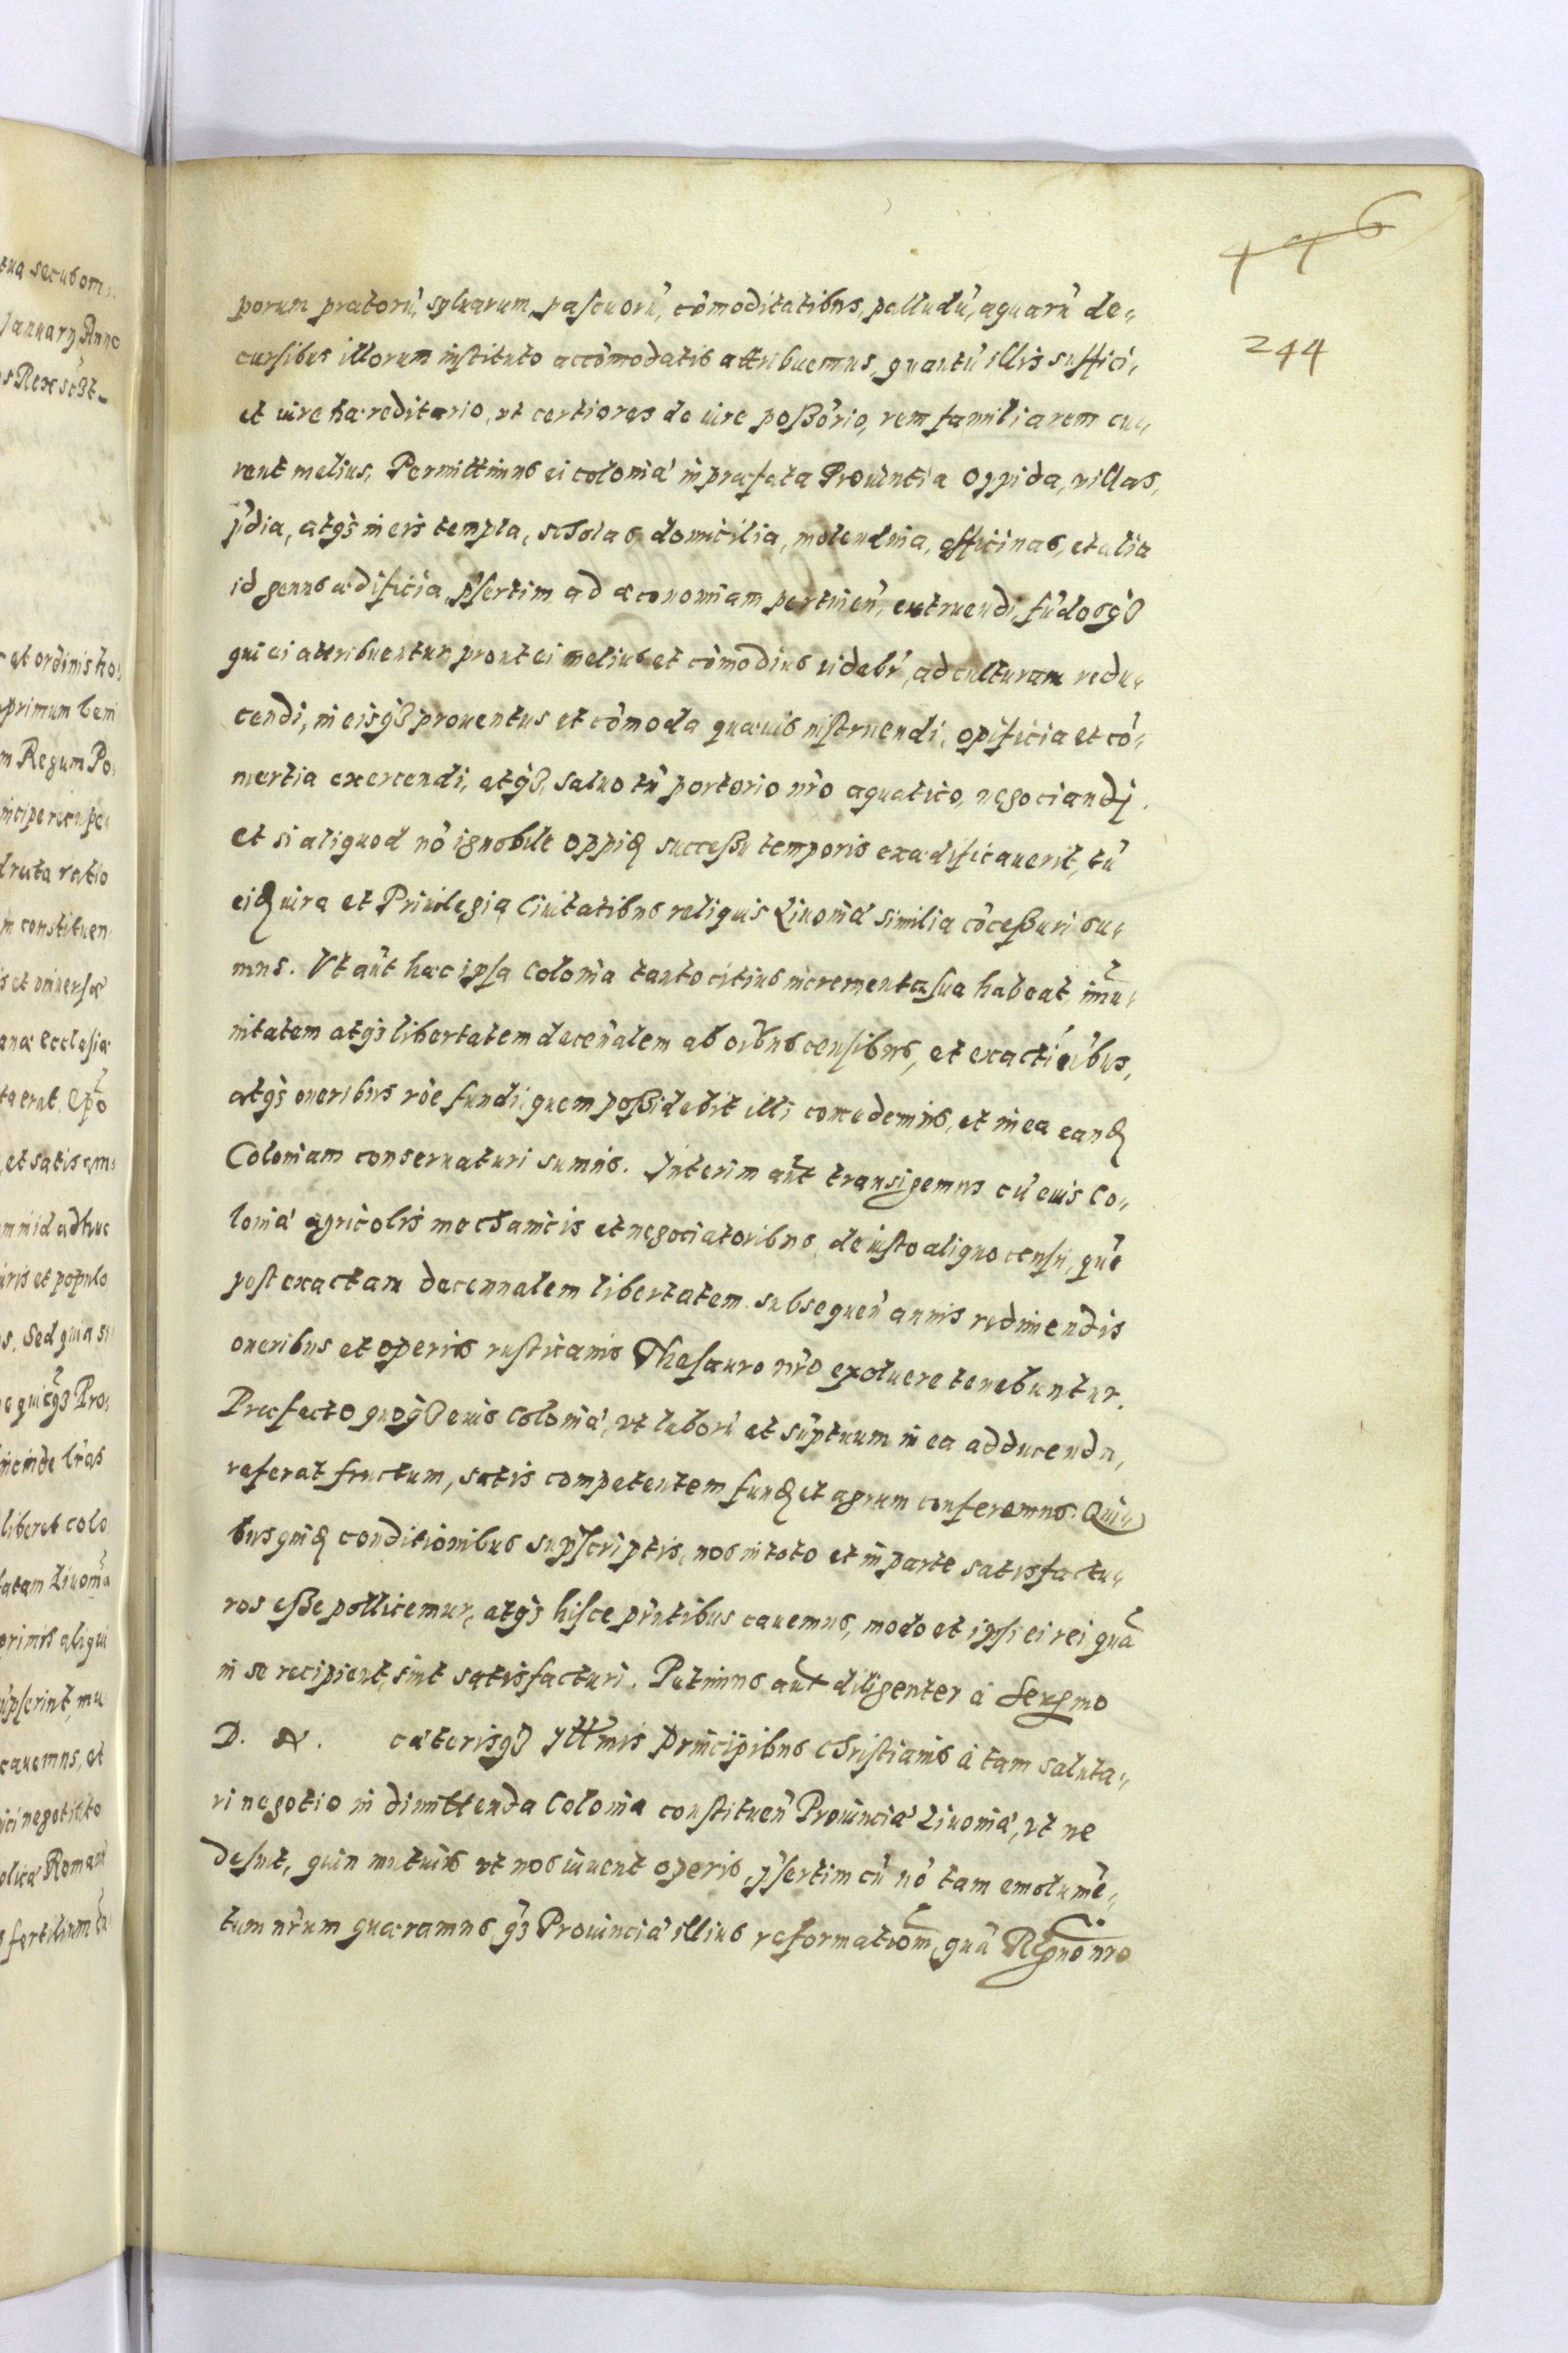 446
244
porum pratorũ, syluarum, pascuorũ, cõmoditatibus, palludũ, aquarũ de-
cursibus illorum instituto accõmodatis attribuemus, quantũ illis suffici,
et iure hæreditario, vt certiores de iure possõrio, rem familiarem cu-
rent melius, Permittimus ei coloniæ in præfata Prouintia oppida, villas,
p̃dia, atq3 in eis templa, scholas domicilia, molendina, officinas, et alia
id genus ædificia, p̃sertim ad œconomiam pertineñ, extruendi, fũdosq3
qui ei attribuentur prout ei melius et cõmodius videbr̃, ad culturam redu-
cendi, in eisq3 prouentus et cõmoda quæuis instruendi, opificia et cõ-
mertia exercendi, atq3, saluo tñ portorio nr̃o aquatico, negociandi.
et si aliquod nõ ignobile oppid successu temporis exædificauerit, tũ
eid iura et Priuilegia Ciuitatibus reliquis Liuoniæ similia cõcessuri su-
mus. Vt aũt hæc ipsa Colonia tanto citius incrementa sua habeat, im̃u-
nitatem atq3 libertatem deceñalem ab oĩbus censibus, et exactiõibus,
atq3 oneribus rõe fundi, quem possidebit illi concedemus, et in ea eand
Coloniam conseruaturi sumus. Interim aũt transigemus cũ eius Co-
loniæ agricolis mechanicis et negociatoribus, de iusto aliquo censu, quẽ
post exactam decennalem libertatem subsequeñ annis redimendis
oneribus et operis rusticanis Thesauro nr̃o exoluere tenebuntur.
Præfecto quoq3 eius Coloniæ, vt laborũ et sũptuum in ea adducenda,
referat fructum, satis competentem fund et agrum conferemus. Qui-
bus quid conditionibus sup̃scriptis, nos in toto et in parte satisfactu-
ros esse pollicemur, atq3 hisce pñtibus cauemus, modo et ipsi ei rei quã
in se recipient, sint satisfacturi. Petimus aũt diligenter à Sermo
D. N. cæterisq3 Illmis Principibus Christianis à tam saluta-
ri negotio in dimittenda Colonia constitueñ Prouinciæ Liuoniæ, vt ne
desint, quin mutuis vt nos iuuent operis, p̃sertim cũ nõ tam emolumẽ-
tum nr̃um quæramus, q3 Prouinciæ illius reformatiom̃, quã Regno nr̃o